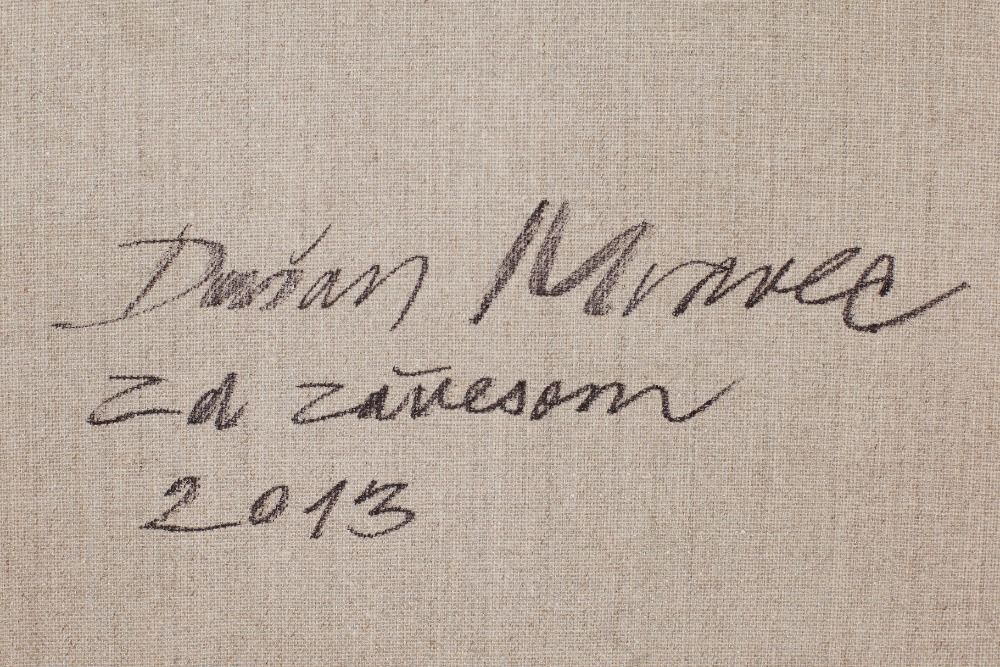 Dušan Mravec
za závesom
2013